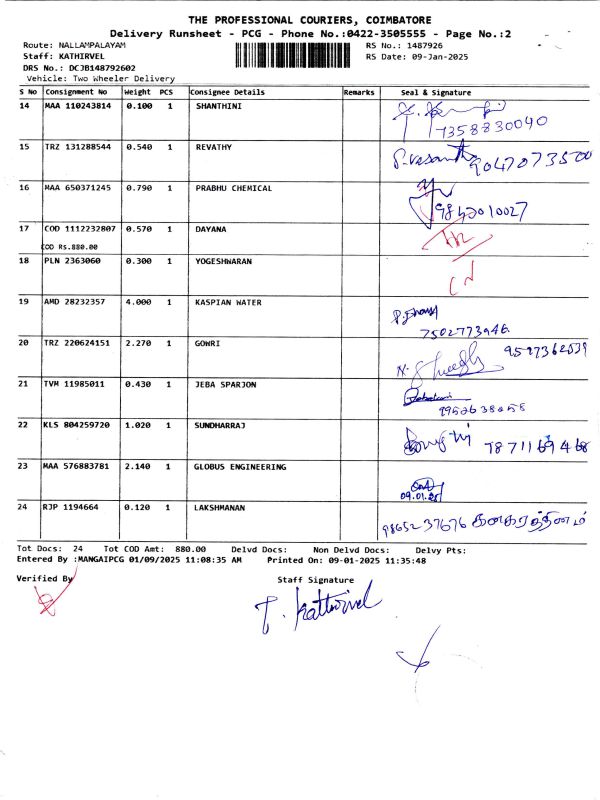 THE PROFESSIONAL COURIERS, COIMBATORE
Delivery Runsheet - PCG - Phone No.:0422-3505555 - Page No.:2
Route: NALLAMPALAYAM RS No.: 1487926
Staff: KATHIRVEL RS Date: 09-Jan-2025
DRS No.: DCJB148792602
Vehicle: Two Wheeler Delivery
S No Consignment No Weight PCS Consignee Details Remarks Seal & Signature
14 MAA 110243814 0.100 1 SHANTHINI
7358830040
15 TRZ 131288544 0.540 1 REVATHY
P.Vasantha 9047073500
16 MAA 650371245 0.790 1 PRABHU CHEMICAL
9842010027
17 COD 1112232807 0.570 1 DAYANA
COD Rs.880.00
18 PLN 2363060 0.300 1 YOGESHWARAN
19 AMD 28232357 4.000 1 KASPIAN WATER
7502773946
20 TRZ 220624151 2.270 1 GOWRI
9597362539
21 TVM 11985011 0.430 1 JEBA SPARJON
9952638058
22 KLS 804259720 1.020 1 SUNDHARRAJ
23 MAA 576883781 2.140 1 GLOBUS ENGINEERING
09.01.25
24 RJP 1194664 0.120 1 LAKSHMANAN
9865237676 கனகரத்தினம்
Tot Docs: 24 Tot COD Amt: 880.00 Delvd Docs: Non Delvd Docs: Delvy Pts:
Entered By :MANGAIPCG 01/09/2025 11:08:35 AM Printed On: 09-01-2025 11:35:48
Verified By Staff Signature
T. Kathirvel